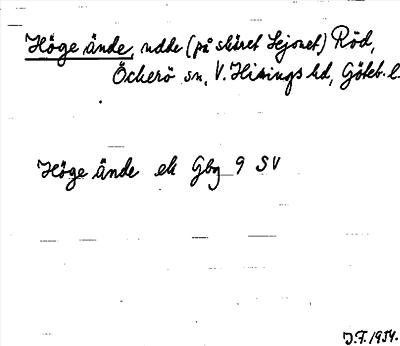 Höge ände, udde (på skäret Lejonet) Röd,
Öckerö sn, V. Hisings hd, Göteb. l.
Höge ände ek Gbg 9 SV
J.F. 1954.